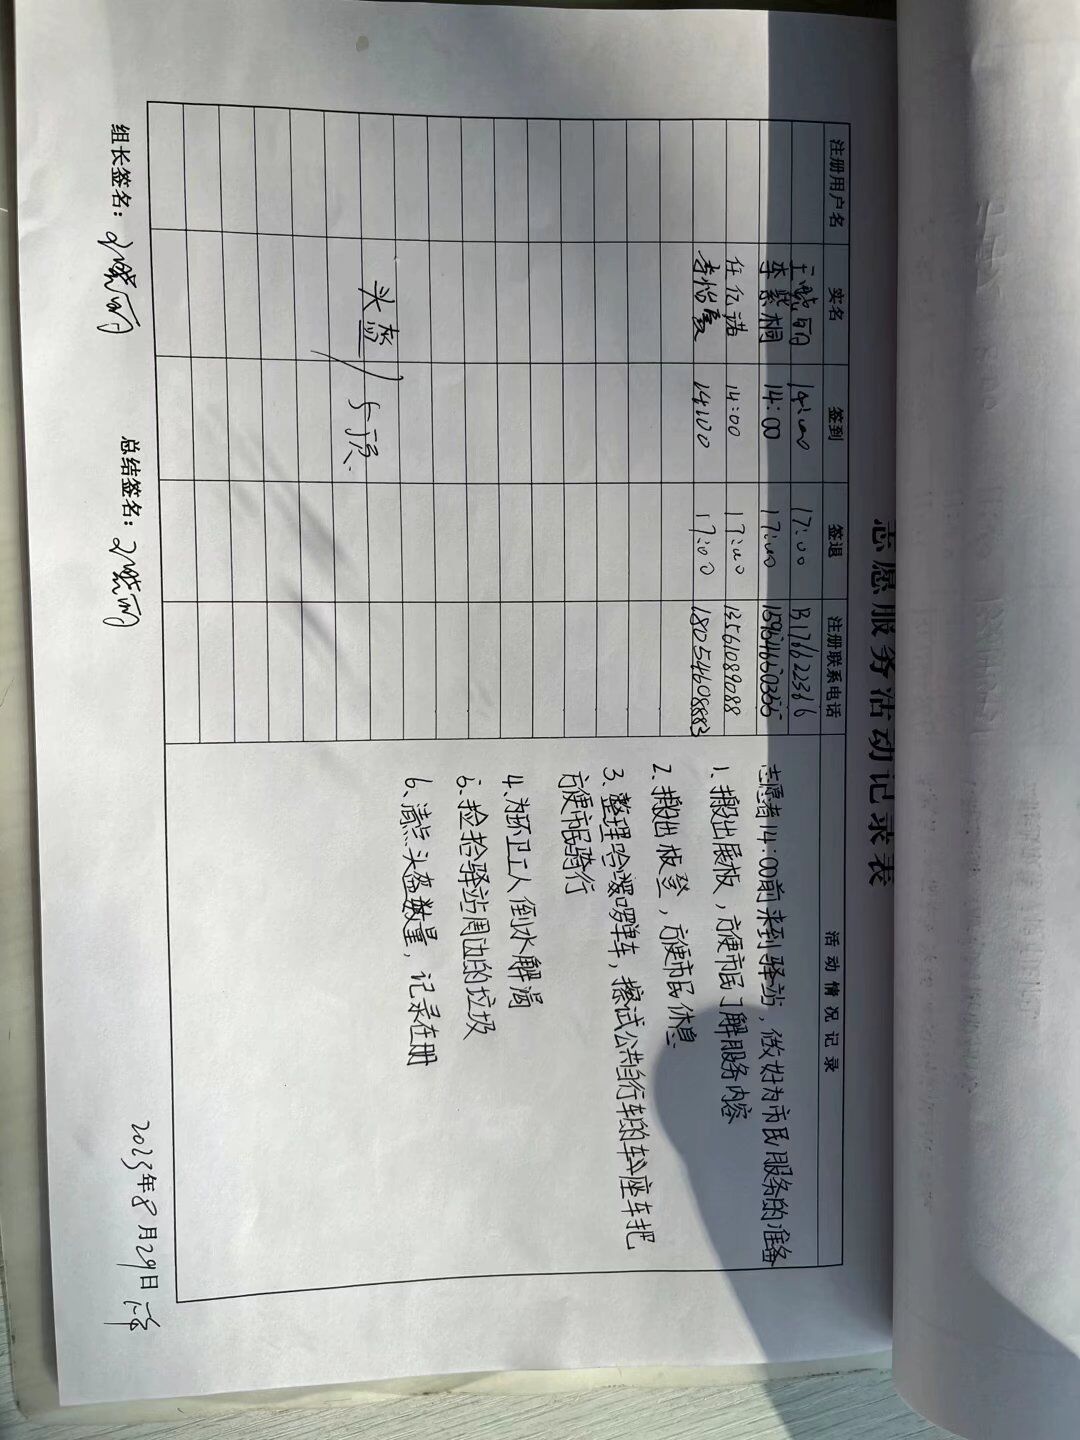 志愿服务活动记录表
注册用户名 实名 签到 签退 注册联系电话 活动情况记录
王晓丽 14:00 17:00
李紫桐 14:00 17:00
任亿诺 14:00 17:00 13561089088
李怡 14:00 17:00 18054608883
志愿者14:00前来到驿站，做好为市民服务的准备
1、搬出展板，方便市民了解服务内容
2、搬出板凳，方便市民休息
3、整理哈啰单车，擦试公共自行车的车座车把
方便市民骑行
4、为环卫工人倒水解渴
5、捡拾驿站周边的垃圾
6、清点头盔数量，记录在册
头盔 5顶
组长签名： 总结签名： 2023年8月29日